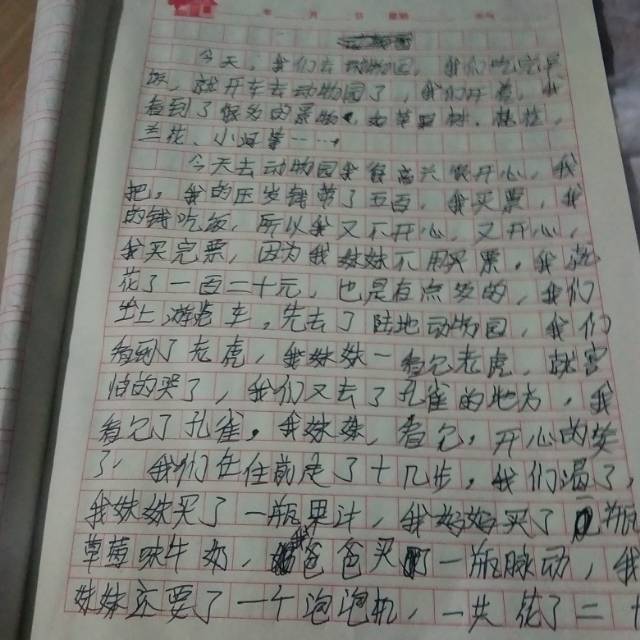 年 月 日 星期
今天，我们去动物园，我们吃完早
饭，就开车去动物园了，我们开着，我
看到了很多的景物，如苹果树，桃花，
兰花、小河等……
今天去动物园我很高兴很开心，我
把，我的压岁钱带了五百，我买票，我
的钱吃饭，所以我又不开心，又开心，
我买完票，因为我妹妹不用买票，我就
花了一百二十元，也是有点多的，我们
坐上游览车，先去了陆地动物园，我们
看到了老虎，我妹妹一看见老虎，就害
怕的哭了，我们又去了孔雀的地方，我
看见了孔雀，我妹妹，看见，开心的笑
了，我们在住前走了十几步，我们渴了，
我妹妹买了一瓶果汁，我妈妈买了瓶
草莓味牛奶，我爸爸买了一瓶脉动，我
妹妹还要了一个泡泡机，一共花了二十